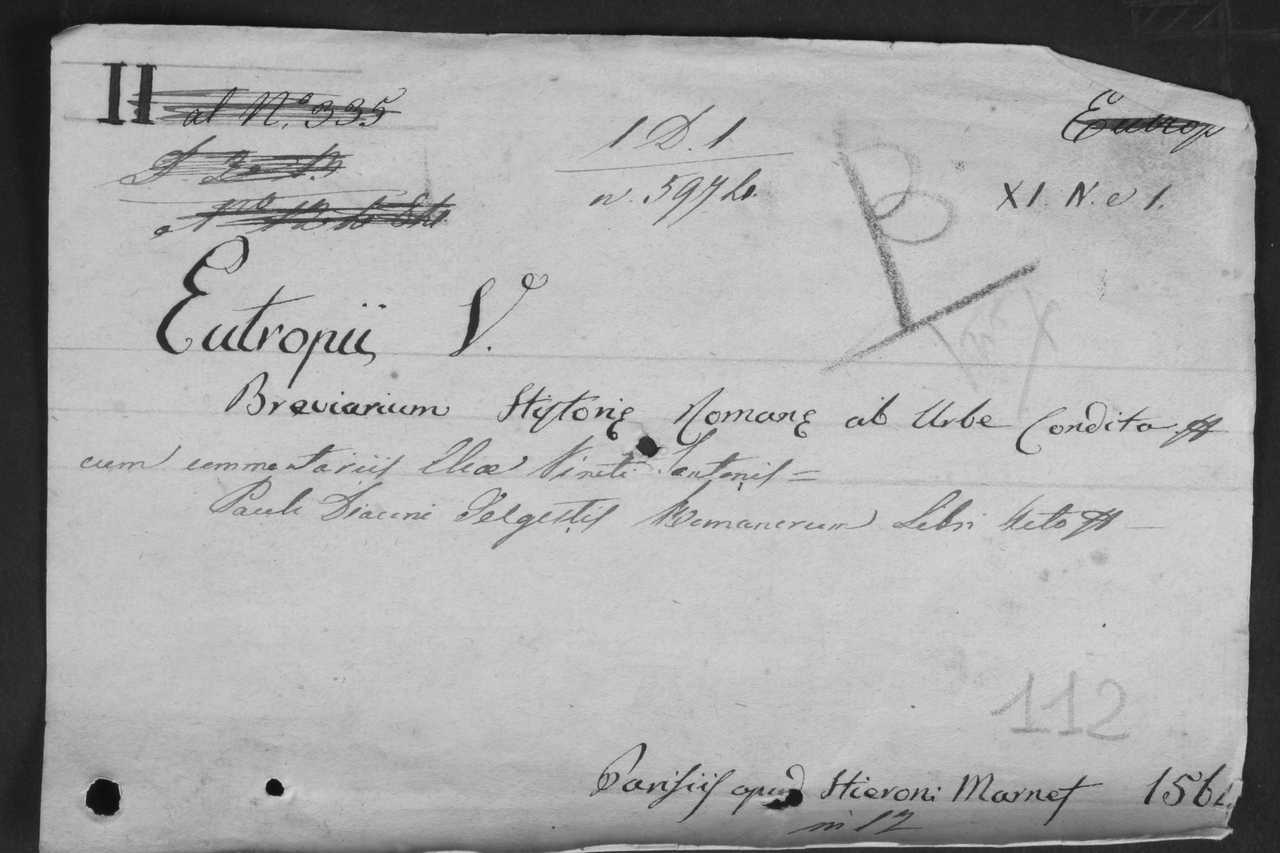 II al N.º 335
1 D. 1
Eutrop
XI. N. e 1.
Eutropii V.
Breviarium Hystorię Romanę ab Urbe Condita
cum commentariis Eliæ Vineti Santonis =
Pauli Diaconi De gestis Romanorum Libri Octo
112
Parisiis apud Hieroni Marnef 156
in 12